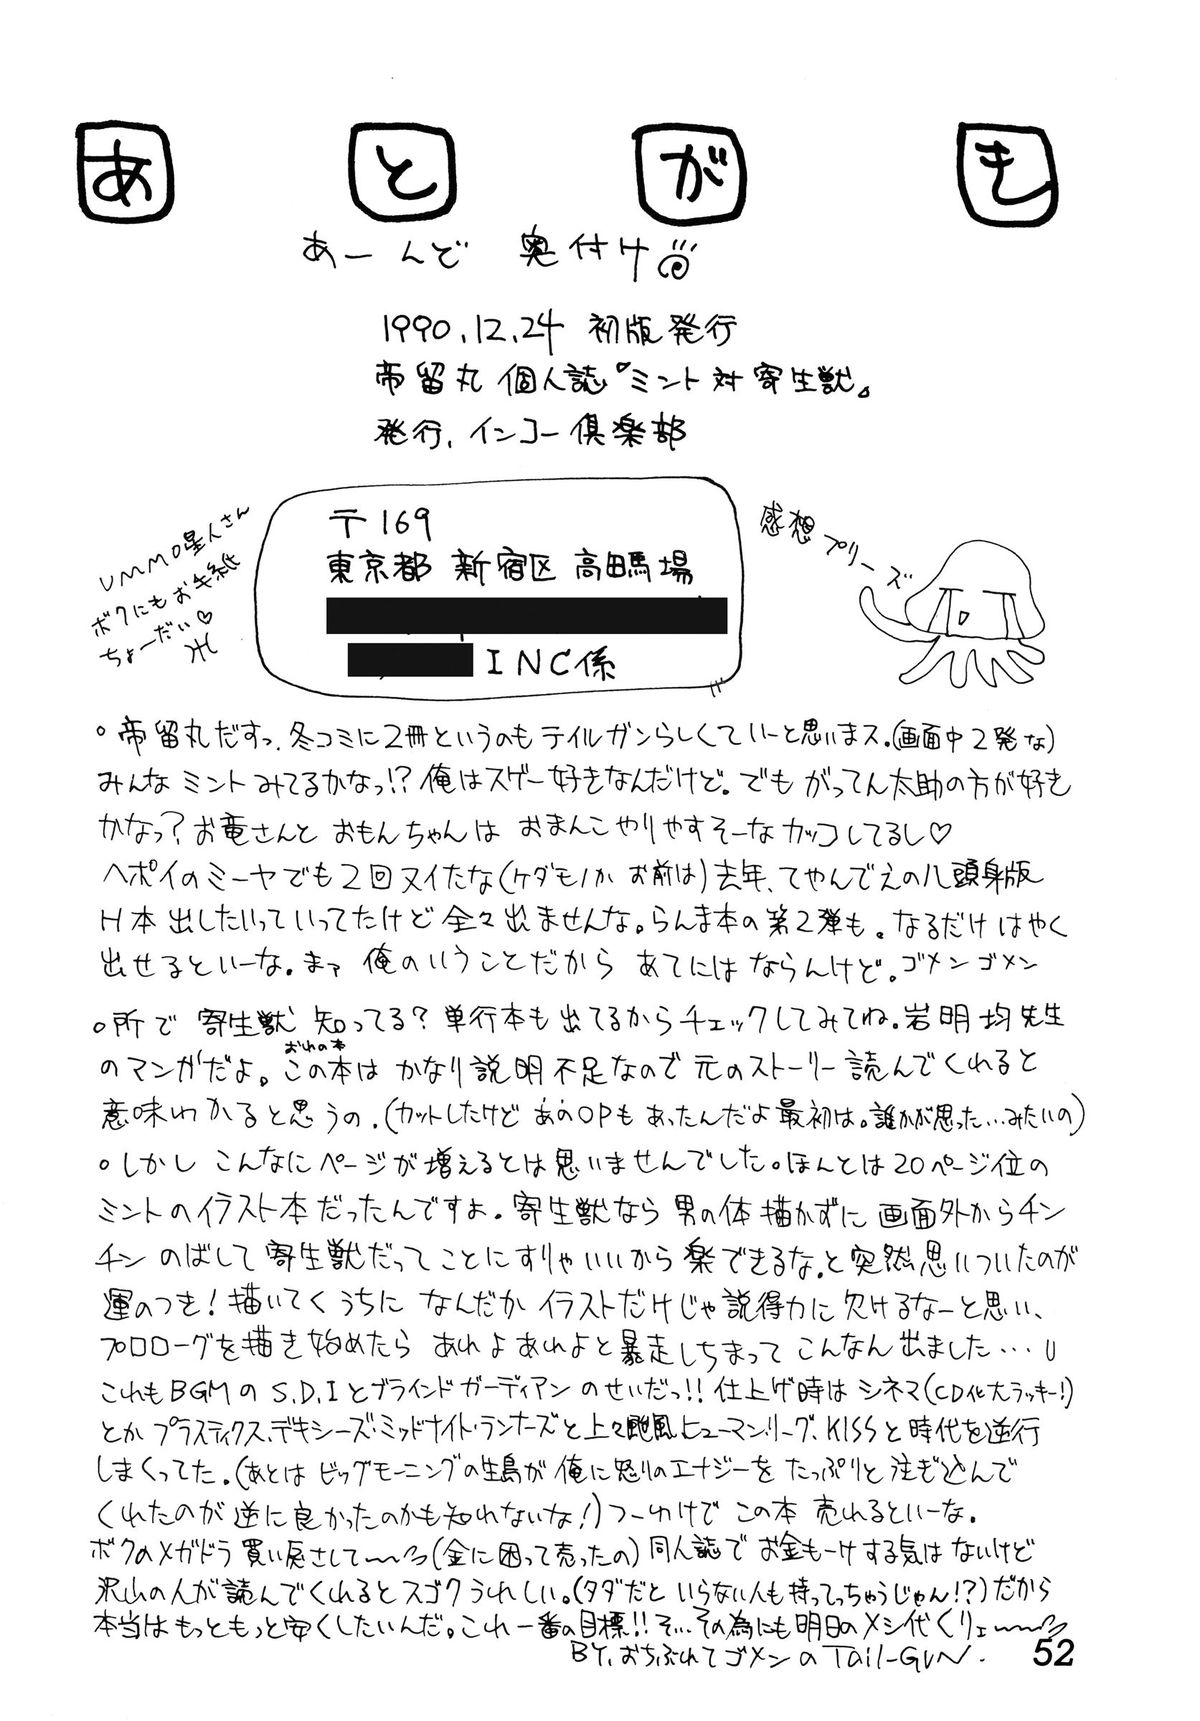 あとがき
あーんど 奥付け
1990.12.24 初版発行
帝留丸 個人誌『ミント対寄生獣』
発行、インコー倶楽部
UMMO星人さん
ボクにもお手紙
ちょーだい♡
〒169
東京都 新宿区 高田馬場
INC係
感想プリーズ
○帝留丸だすっ、冬コミに2冊というのもテイルガンらしくていーと思いまス。(画面中2発な)
みんなミントみてるかなっ!?俺はスゲー好きなんだけど。でも がってん太助の方が好き
かなっ?お竜さんと おもんちゃんは おまんこやりやすそーなカッコしてるし♡
ヘポイのミーヤでも2回ヌイたな(ケダモノか お前は)去年、てやんでえの八頭身版
H本出したいっていってたけど 全々出ませんな。らんま本の第2弾も。なるだけ はやく
出せるといーな。まァ 俺のいうことだから あてにはならんけど。ゴメンゴメン
○所で 寄生獣 知ってる?単行本も出てるからチェックしてみてね。岩明均先生
のマンガだよ。この本(おれの本)は かなり説明不足なので 元のストーリー読んでくれると
意味わかると思うの.(カットしたけど あのOPもあったんだよ最初は。誰かが思った…みたいの)
○しかし こんなにページが増えるとは思いませんでした。ほんとは20ページ位の
ミントのイラスト本だったんですよ. 寄生獣なら 男の体 描かずに 画面外からチン
チン のばして 寄生獣だってことにすりゃいいから 楽できるな.と突然思いついたのが
運のつき!描いてくうちに なんだか イラストだけじゃ説得力に欠けるなーと思い、
プロローグを描き始めたら あれよあれよと暴走しちまって こんなん出ました…
これもBGMの S.D.Iとブラインドガーディアンのせいだっ!!仕上げ時は シネマ(CD化大ラッキー!)
とか プラスティクス、デキシーズ・ミッドナイト・ランナーズと上々颱風、ヒューマン・リーグ、KISSと時代を逆行
しまくってた.(あとは ビッグモーニングの生島が 俺に怒りのエナジーを たっぷりと注ぎ込んで
くれたのが逆に良かったのかも知れないな!)つーわけで この本 売れるといーな.
ボクのメガドラ買い戻さして〜〜(金に困って売ったの)同人誌で お金もーけする気はないけど
沢山の人が読んでくれるとスゴクうれしい。(タダだと いらない人も持ってっちゃうじゃん!?)だから
本当はもっともっと安くしたいんだ。これ一番の目標!!そ…その為にも明日のメシ代くりェ〜〜
BY.おちぶれてゴメンのTail-GuN.
52